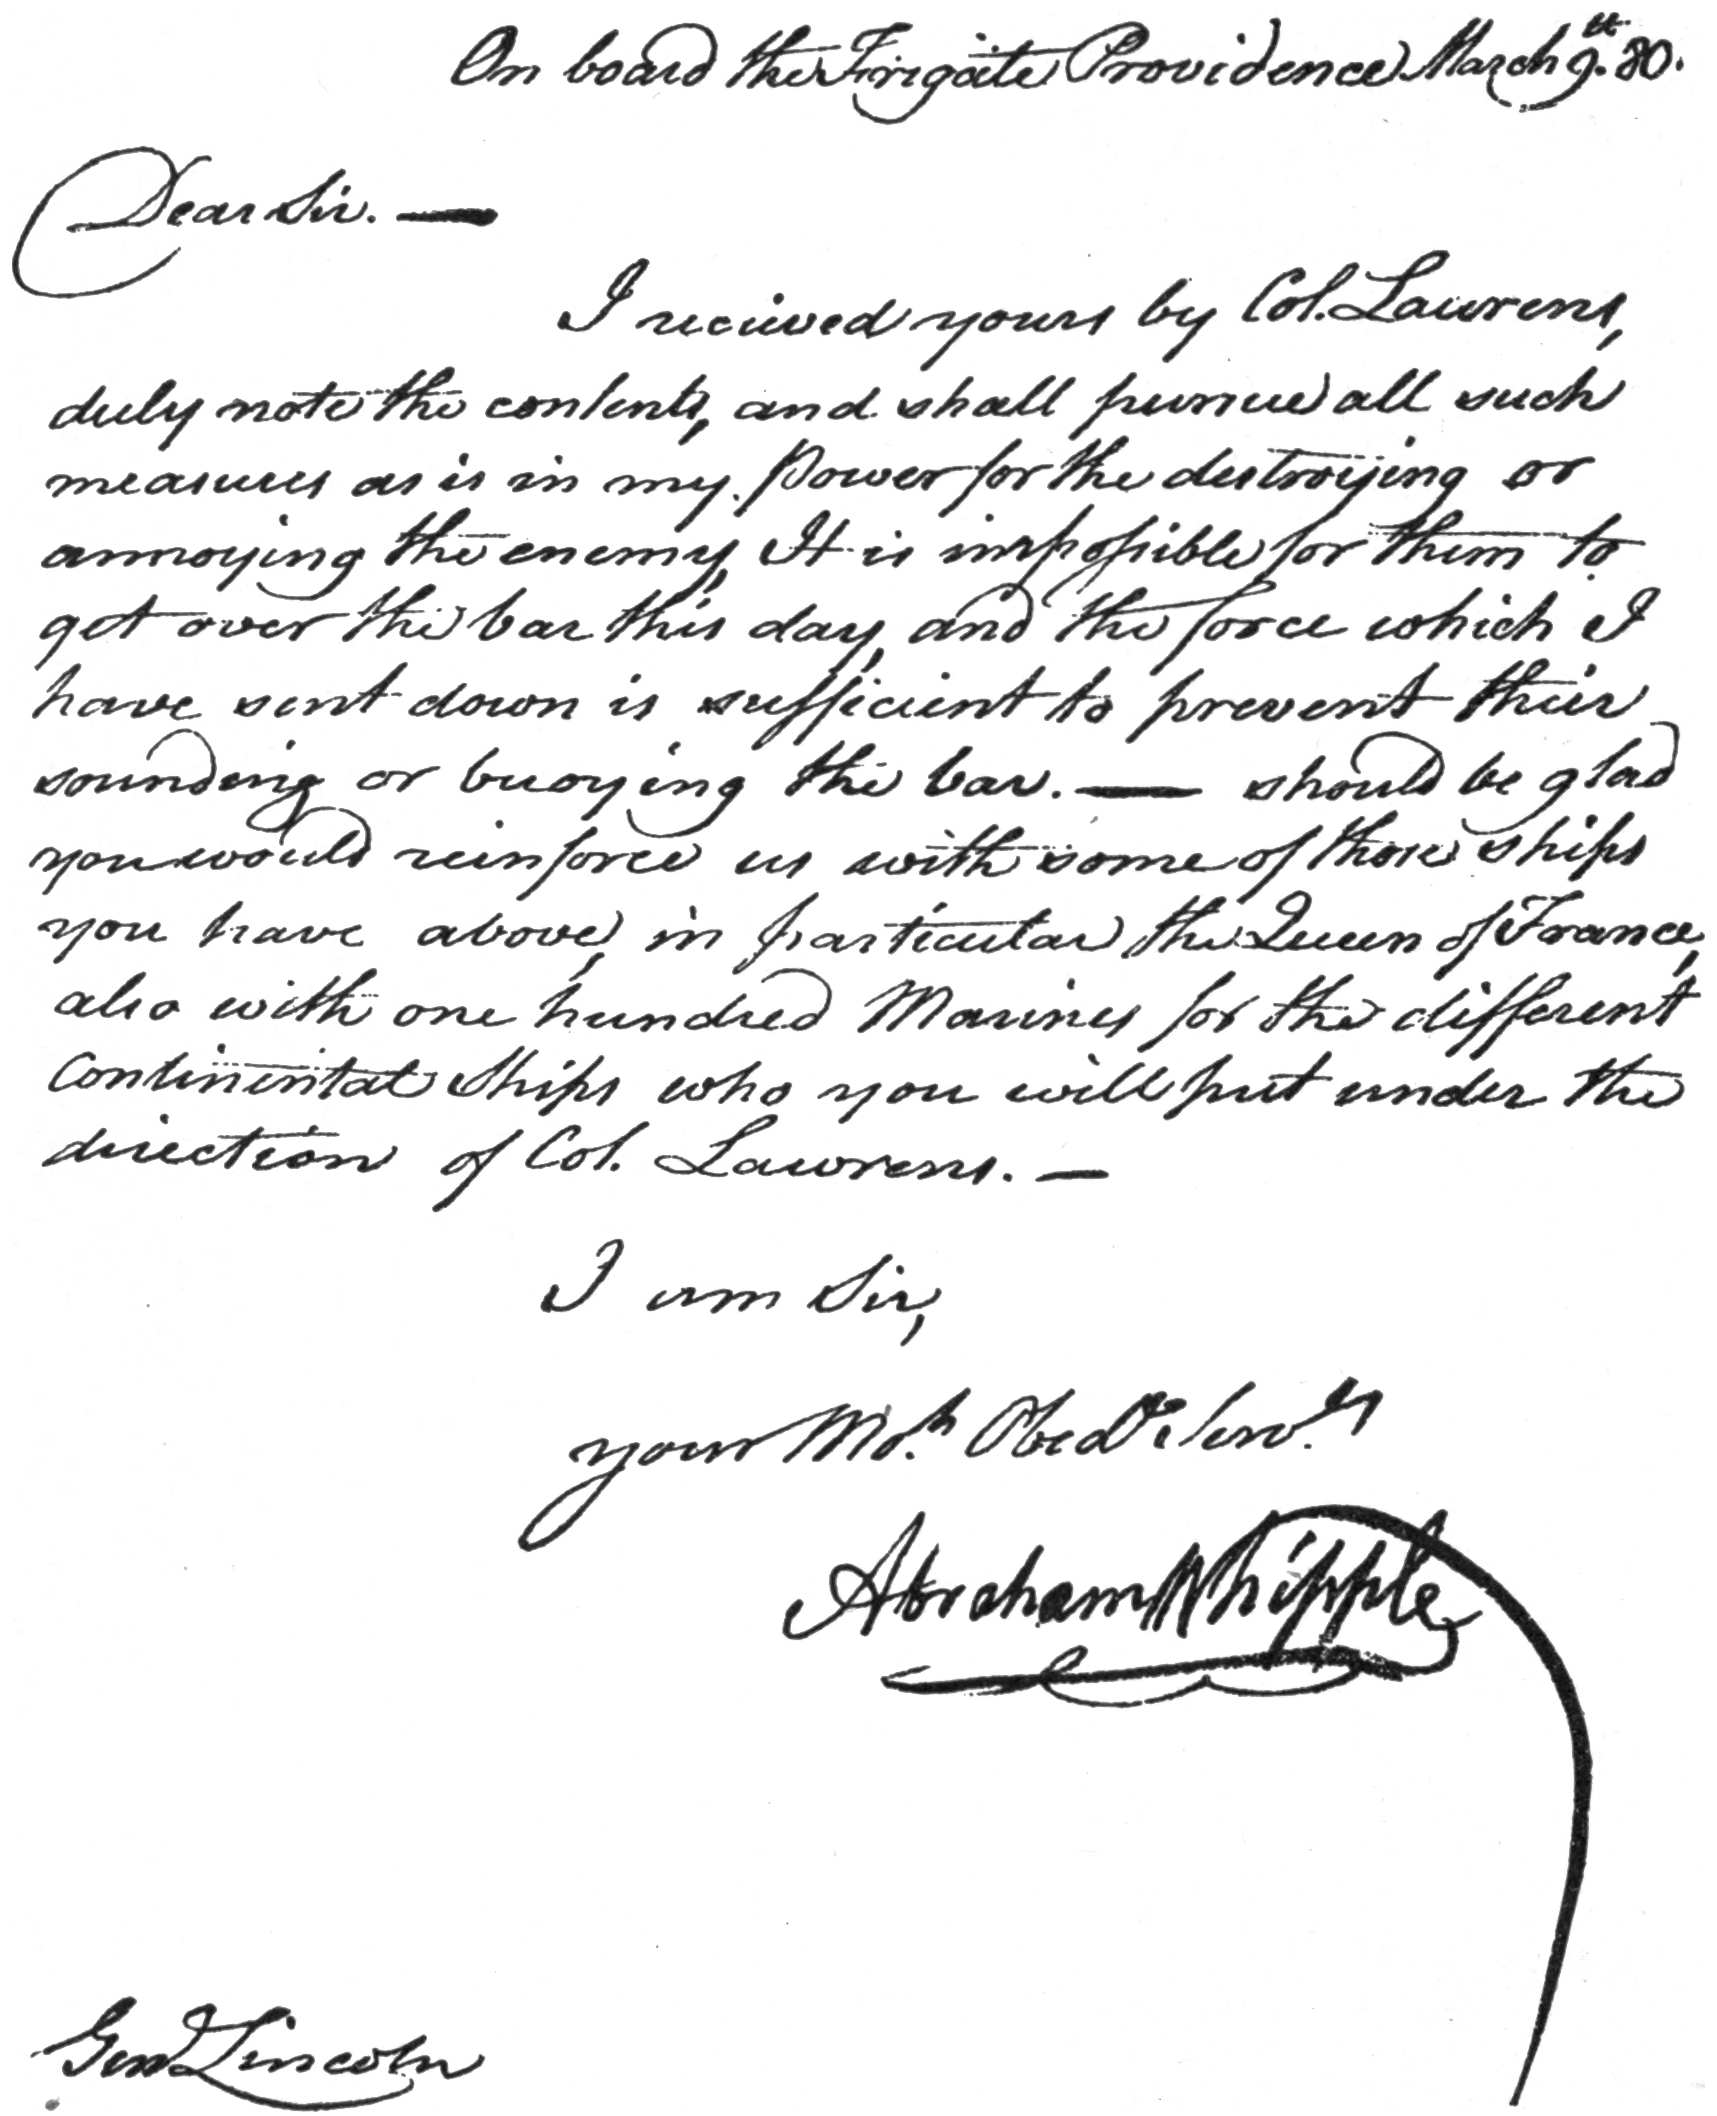 On board the Frigate Providence March 9th. 80.
Dear Sir. —
I recieved yours by Col. Lawrens,
duly note the contents, and shall pursue all such
measures as is in my power for the destroying or
annoying the enemy, It is impossible for them to
get over the bar this day, and the force which I
have sent down is sufficient to prevent their
sounding or buoying the bar. — should be glad
you would reinforce us with some of those ships
you have above, in particular the Queen of France,
also with one hundred Marines for the different
Continental Ships who you will put under the
direction of Col. Lawrens. —
I am Sir,
your Mo. h Obedt Serv. ts
Abraham Whipple
Genl Lincoln